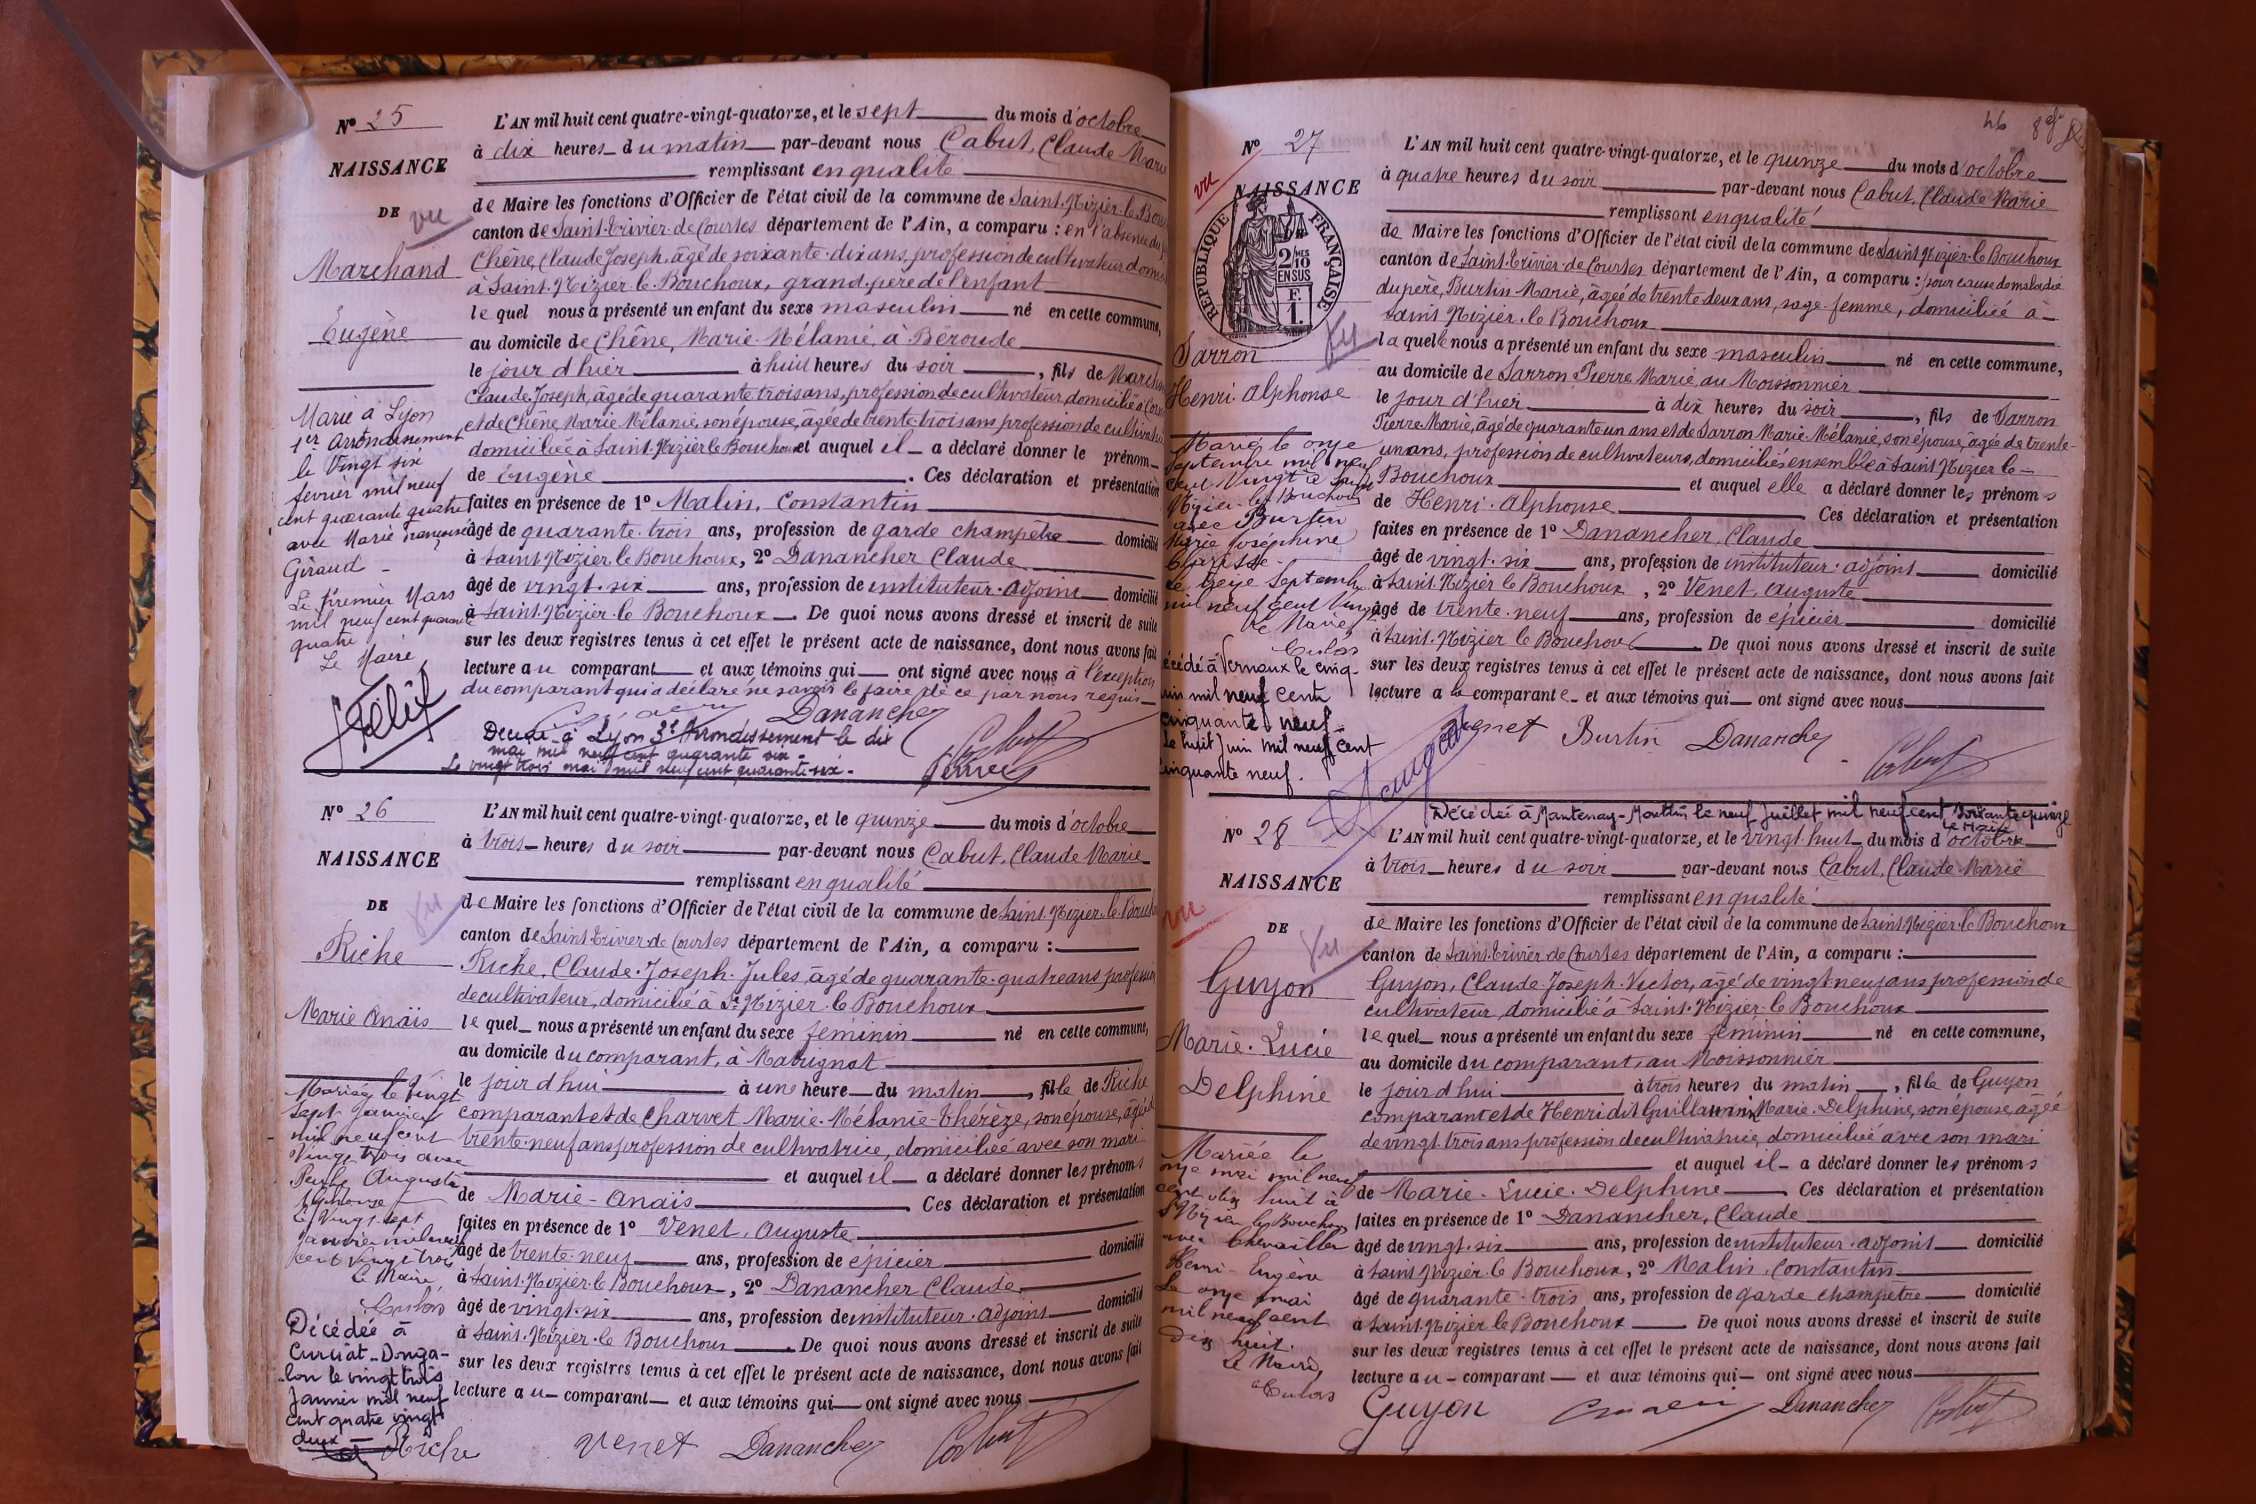 Nº 25
NAISSANCE
DE
vu
Marchand
Eugène
Marié à Lyon
1er Arrondissement
le Vingt six
février mil neuf
cent quarante quatre
avec Marie Françoise
Giraud -
Le premier Mars
mil neuf cent quarante
quatre
Le Maire
L'AN mil huit cent quatre-vingt-quatorze, et le sept du mois d'octobre
à dix heures du matin par-devant nous Cabut, Claude Marie
remplissant en qualité
de Maire les fonctions d'Officier de l'état civil de la commune de Saint-Nizier-le-Bou
canton de Saint-Trivier-de-Courtes département de l'Ain, a comparu : en l'absence du
Chêne, Claude Joseph, âgé de soixante-dix ans, profession de cultivateur domi
à Saint-Nizier-le-Bouchoux, grand-père de l'enfant
lequel nous a présenté un enfant du sexe masculin né en cette commune,
au domicile de Chêne, Marie-Mélanie, à Béroude
le jour d'hier à huit heures du soir, fils de March
Claude Joseph, âgé de quarante trois ans, profession de cultivateur domicilié à
et de Chêne Marie Mélanie, son épouse, âgée de trente-trois ans profession de cultivat
domiciliée à Saint-Nizier le Bouchoux et auquel il a déclaré donner le prénom
de Eugène. Ces déclaration et présentation
faites en présence de 1º Malin, Constantin
âgé de quarante-trois ans, profession de garde champêtre domicilié
à Saint-Nizier le Bouchoux, 2º Danancher Claude
âgé de vingt-six ans, profession de instituteur-adjoint domicilié
à Saint-Nizier-le Bouchoux. De quoi nous avons dressé et inscrit de suite
sur les deux registres tenus à cet effet le présent acte de naissance, dont nous avons fait
lecture au comparant et aux témoins qui ont signé avec nous à l'exception
du comparant qui a déclaré ne savoir le faire de ce par nous requis
Danancher
Décédé à Lyon 3e Arrondissement le dix
mai mil neuf cent quarante six -
Le vingt trois mai mil neuf cent quarante-six -
Nº 26
NAISSANCE
DE
vu
Riche
Marie Anaïs
Mariée le Vingt
sept janvier
mil neuf cent
Vingt trois avec
Auguste
Alphonse
Le Vingt-sept
janvier mil neuf
cent Vingt trois
Le Maire
Décédée à
Curciat-Donga-
lon le vingt trois
Janvier mil neuf
cent quatre vingt
deux -
L'AN mil huit cent quatre-vingt-quatorze, et le quinze du mois d'octobre
à trois heures du soir par-devant nous Cabut, Claude Marie
remplissant en qualité
de Maire les fonctions d'Officier de l'état civil de la commune de Saint-Nizier-le-Bouch
canton de Saint-Trivier-de-Courtes département de l'Ain, a comparu :
Riche, Claude-Joseph-Jules, âgé de quarante-quatre ans profession
de cultivateur, domicilié à St Nizier-le Bouchoux
lequel nous a présenté un enfant du sexe féminin né en cette commune,
au domicile du comparant, à Matrignat
le jour d'hui à une heure du matin, fille de Riche
comparant et de Charvet Marie-Mélanie-Thérèze, son épouse, âgée de
trente-neuf ans profession de cultivatrice, domiciliée avec son mari
et auquel il a déclaré donner les prénoms
de Marie-Anaïs. Ces déclaration et présentation
faites en présence de 1º Venet, Auguste
âgé de trente-neuf ans, profession de épicier domicilié
à Saint-Nizier-le Bouchoux, 2º Danancher Claude
âgé de vingt-six ans, profession de instituteur-adjoint domicilié
à Saint-Nizier-le Bouchoux. De quoi nous avons dressé et inscrit de suite
sur les deux registres tenus à cet effet le présent acte de naissance, dont nous avons fait
lecture au comparant et aux témoins qui ont signé avec nous
Riche Venet Danancher
46
Nº 27
vu
NAISSANCE
REPUBLIQUE FRANÇAISE
2/10 MES
EN SUS
F.
1.
vu
Sarron
Henri Alphonse
Marié le onze
Septembre mil neuf
cent Vingt à Saint
Nizier-le-Bouchoux
avec Burtin
Marie Joséphine
Clarisse -
Le treize Septembre
mil neuf cent Vingt
Le Maire
écédé à Vernoux le cinq
uin mil neuf cent
cinquante neuf
Le huit Juin mil neuf cent
cinquante neuf.
L'AN mil huit cent quatre-vingt-quatorze, et le quinze du mois d'octobre
à quatre heures du soir par-devant nous Cabut, Claude Marie
remplissant en qualité
de Maire les fonctions d'Officier de l'état civil de la commune de Saint Nizier-le Bouchoux
canton de Saint-Trivier-de-Courtes département de l'Ain, a comparu : pour cause de maladie
du père, Burtin Marie, âgée de trente deux ans, sage-femme, domiciliée à
Saint Nizier-le Bouchoux
laquelle nous a présenté un enfant du sexe masculin né en cette commune,
au domicile de Sarron Pierre Marie, au Moissonnier
le jour d'hier à dix heures du soir, fils de Sarron
Pierre Marie, âgé de quarante un ans et de Sarron Marie Mélanie, son épouse, âgée de trente-
un ans, profession de cultivateurs, domiciliés ensemble à Saint Nizier le
Bouchoux et auquel elle a déclaré donner les prénoms
de Henri-Alphonse Ces déclaration et présentation
faites en présence de 1º Danancher, Claude
âgé de vingt-six ans, profession de instituteur-adjoint domicilié
à Saint-Nizier le Bouchoux, 2º Venet, Auguste
âgé de trente-neuf ans, profession de épicier domicilié
à Saint-Nizier le Bouchoux. De quoi nous avons dressé et inscrit de suite
sur les deux registres tenus à cet effet le présent acte de naissance, dont nous avons fait
lecture a la comparante et aux témoins qui ont signé avec nous
Venet Burtin Danancher
Décédée à Mantenay-Montlin le neuf Juillet mil neuf cent soixante quinze
Le Maire
Nº 28
NAISSANCE
vu
DE
vu
Guyon
Marie-Lucie
Delphine
Mariée le
onze mai mil neuf
cent dix huit à
St Nizier le Bouchoux
avec Chevailler
Henri-Eugène
Le onze mai
mil neuf cent
dix huit.
Le Maire,
L'AN mil huit cent quatre-vingt-quatorze, et le vingt-huit du mois d'octobre
à trois heures du soir par-devant nous Cabut, Claude Marie
remplissant en qualité
de Maire les fonctions d'Officier de l'état civil de la commune de Saint Nizier-le Bouchoux
canton de Saint-Trivier de Courtes département de l'Ain, a comparu :
Guyon, Claude-Joseph-Victor, âgé de vingt-neuf ans profession de
cultivateur, domicilié à Saint-Nizier-le Bouchoux
lequel nous a présenté un enfant du sexe féminin né en cette commune,
au domicile du comparant, au Moissonnier
le jour d'hui à trois heures du matin, fille de Guyon
comparant et de Henri dit Guillaumin Marie-Delphine, son épouse, âgée
de vingt trois ans profession de cultivatrice, domiciliée avec son mari
et auquel il a déclaré donner les prénoms
de Marie-Lucie-Delphine. Ces déclaration et présentation
faites en présence de 1º Danancher, Claude
âgé de vingt-six ans, profession de instituteur-adjoint domicilié
à Saint Nizier le Bouchoux, 2º Malin, Constantin
âgé de quarante-trois ans, profession de garde champêtre domicilié
à Saint-Nizier le Bouchoux De quoi nous avons dressé et inscrit de suite
sur les deux registres tenus à cet effet le présent acte de naissance, dont nous avons fait
lecture au comparant et aux témoins qui ont signé avec nous
Guyon Danancher